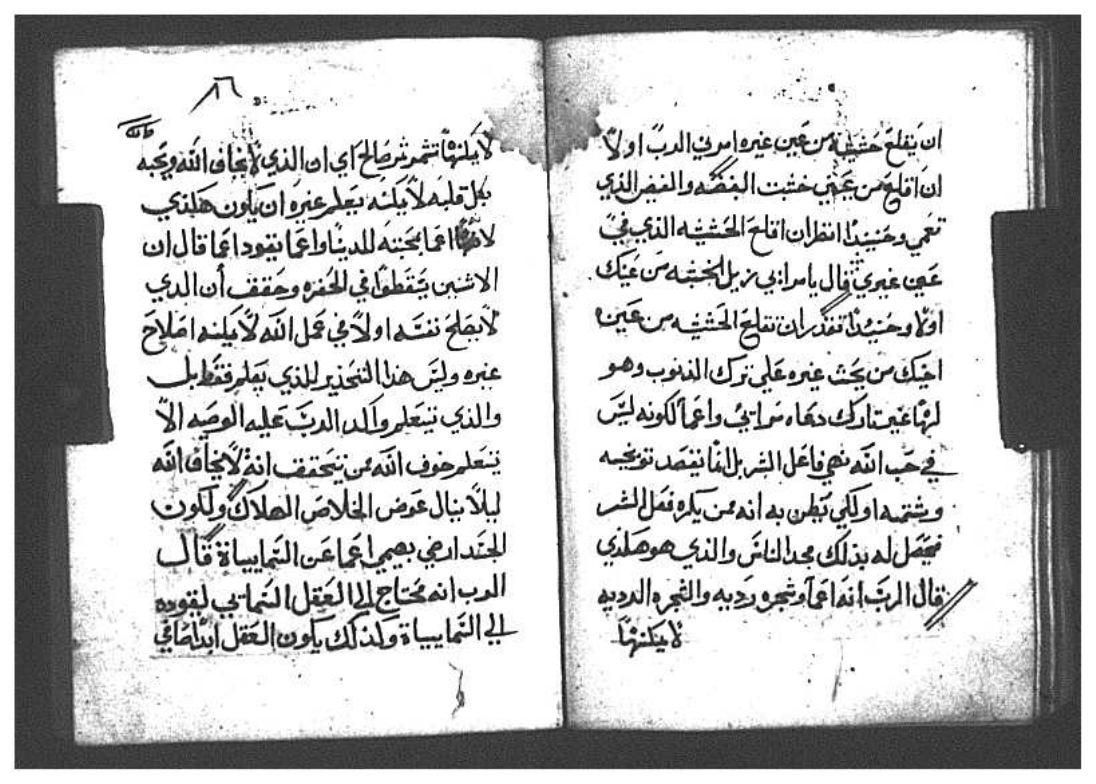 ان يقلع خشبة من عين غيره امرني الرب اولاً
ان اقلع من عيني خشبت البغضه والغيض الذي
تعمي وحينيدًا انظر ان اقلع الخشبه الذي في
عين غيري قال يا مرايي زيل الخشبه من عينك
اولا وحينيدًا تقدر ان تقلع الخشبه من عين
اخيك من يحث غيره علي ترك الذنوب وهو
لها غير تارك دعاه مرايي واعمأ لكونه ليس
في حب الله نهي فاعل الشر بل انما يقصد توبيخه
وشتمه او لكي يظن به انه ممن يكره فعل الشر
فيحصل له بذلك مجد الناس والذي هو هكذي
قال الرب انه اعمأ وشجره رديه والشجره الرديه
لا يمكنها
لا يمكنها تثمر ثمر صالح اي ان الذي لا يخاف الله ويحبه
بكل قلبه لا يمكنه يعلم غيره ان يكون هكذي
اعما بمحبته للدنيا واعما يقود اعما قال ان
الاثنين يسقطوا في الحفره وحقق أن الدي
لا يصلح نفسه اولاً في عمل الله لا يمكنه اصلاح
غيره وليس هذا التحذير للذي يعلم فقط بل
والذي يتعلم واكد الرب عليه الوصيه الا
يتعلم خوف الله ممن يتحقق انه لا يخاف الله
ليلا ينال عوض الخلاص الهلاك ولكون
الجسد ارضي بصير اعما عن السماييياة قال
الرب انه محتاج الي العقل السمايي ليقوده
الي السماييياة ولذلك يكون العقل ابدًا صافي